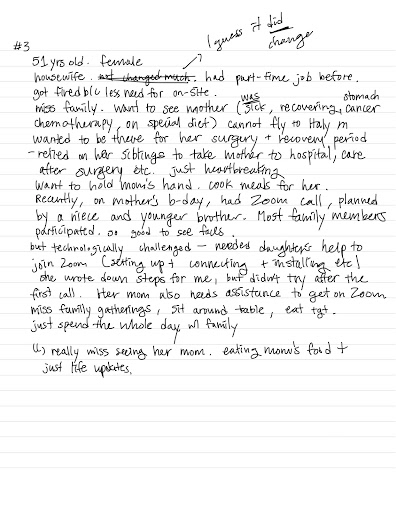 I guess it did
change
#3
51 yrs old. female
housewife. not changed much. had part-time job before.
got fired b/c less need for on-site.
miss family. want to see mother (was sick, recovering, stomach cancer
chemotherapy, on special diet) cannot fly to Italy m
wanted to be there for her surgery + recovery period
- relied on her siblings to take mother to hospital, care
after surgery etc. just heartbreaking
want to hold mom's hand. cook meals for her.
Recently, on mother's b-day, had Zoom call, planned
by a niece and younger brother. Most family members
participated. so good to see faces.
but technologically challenged — needed daughter's help to
join Zoom (setting up + connecting + installing etc)
she wrote down steps for me, but didn't try after the
first call. Her mom also needs assistance to get on Zoom
miss family gatherings, sit around table, eat tgt.
just spend the whole day w/ family
↳ really miss seeing her mom. eating mom's food +
just life updates.